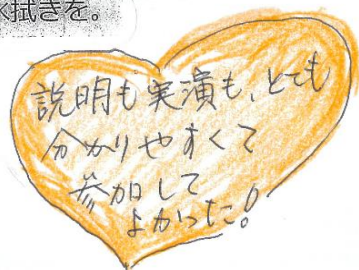 拭きを。
説明も実演も、とても
分かりやすくて
参加して
よかった!